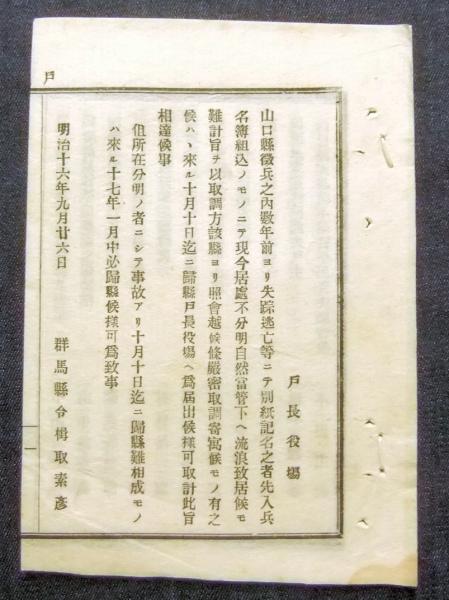 戸
戸長役場
山口縣徵兵之內數年前ヨリ失踪逃亡等ニテ別紙記名之者先入兵
名簿組込ノモノニテ現今居處不分明自然當管下ヘ流浪致居候モ
難計旨ヲ以取調方該縣ヨリ照會越候條嚴密取調寄寓候モノ有之
候ハヽ來ル十月十日迄ニ歸縣戸長役場ヘ爲届出候樣可取計此旨
相達候事
但所在分明ノ者ニシテ事故アリ十月十日迄ニ歸縣難相成モノ
ハ來ル十七年一月中必歸縣候樣可爲致事
明治十六年九月廿六日
群馬縣令楫取素彦